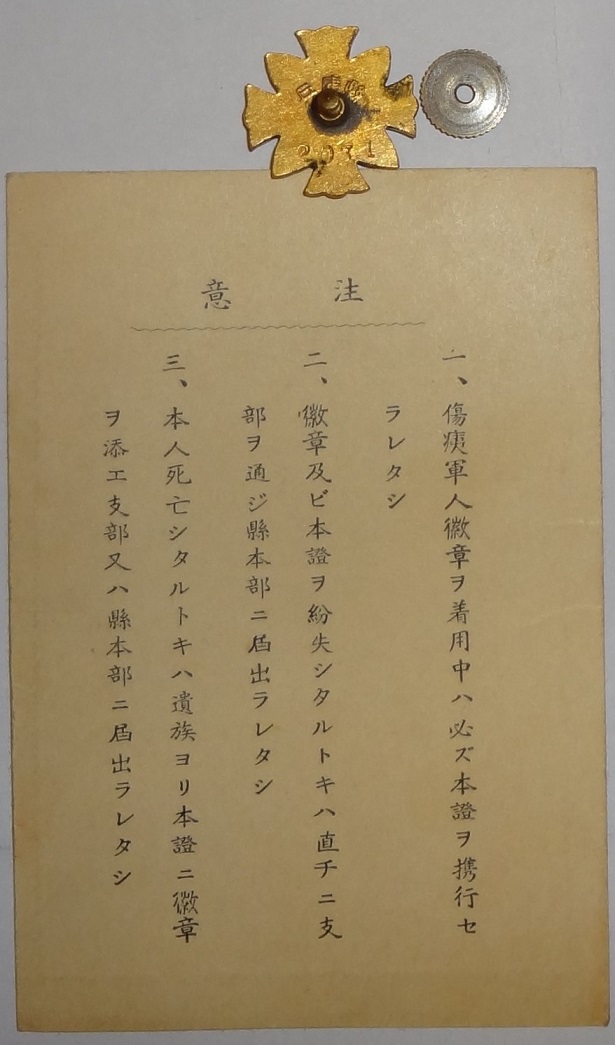 2071
注意
一、傷痍軍人徽章ヲ着用中ハ必ズ本證ヲ携行セ
ラレタシ
二、徽章及ビ本證ヲ紛失シタルトキハ直チニ支
部ヲ通ジ縣本部ニ届出ラレタシ
三、本人死亡シタルトキハ遺族ヨリ本證ニ徽章
ヲ添エ支部又ハ縣本部ニ届出ラレタシ